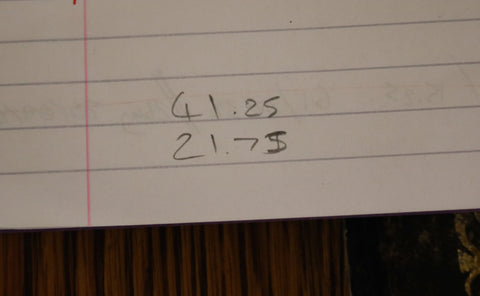 41.25
21.75